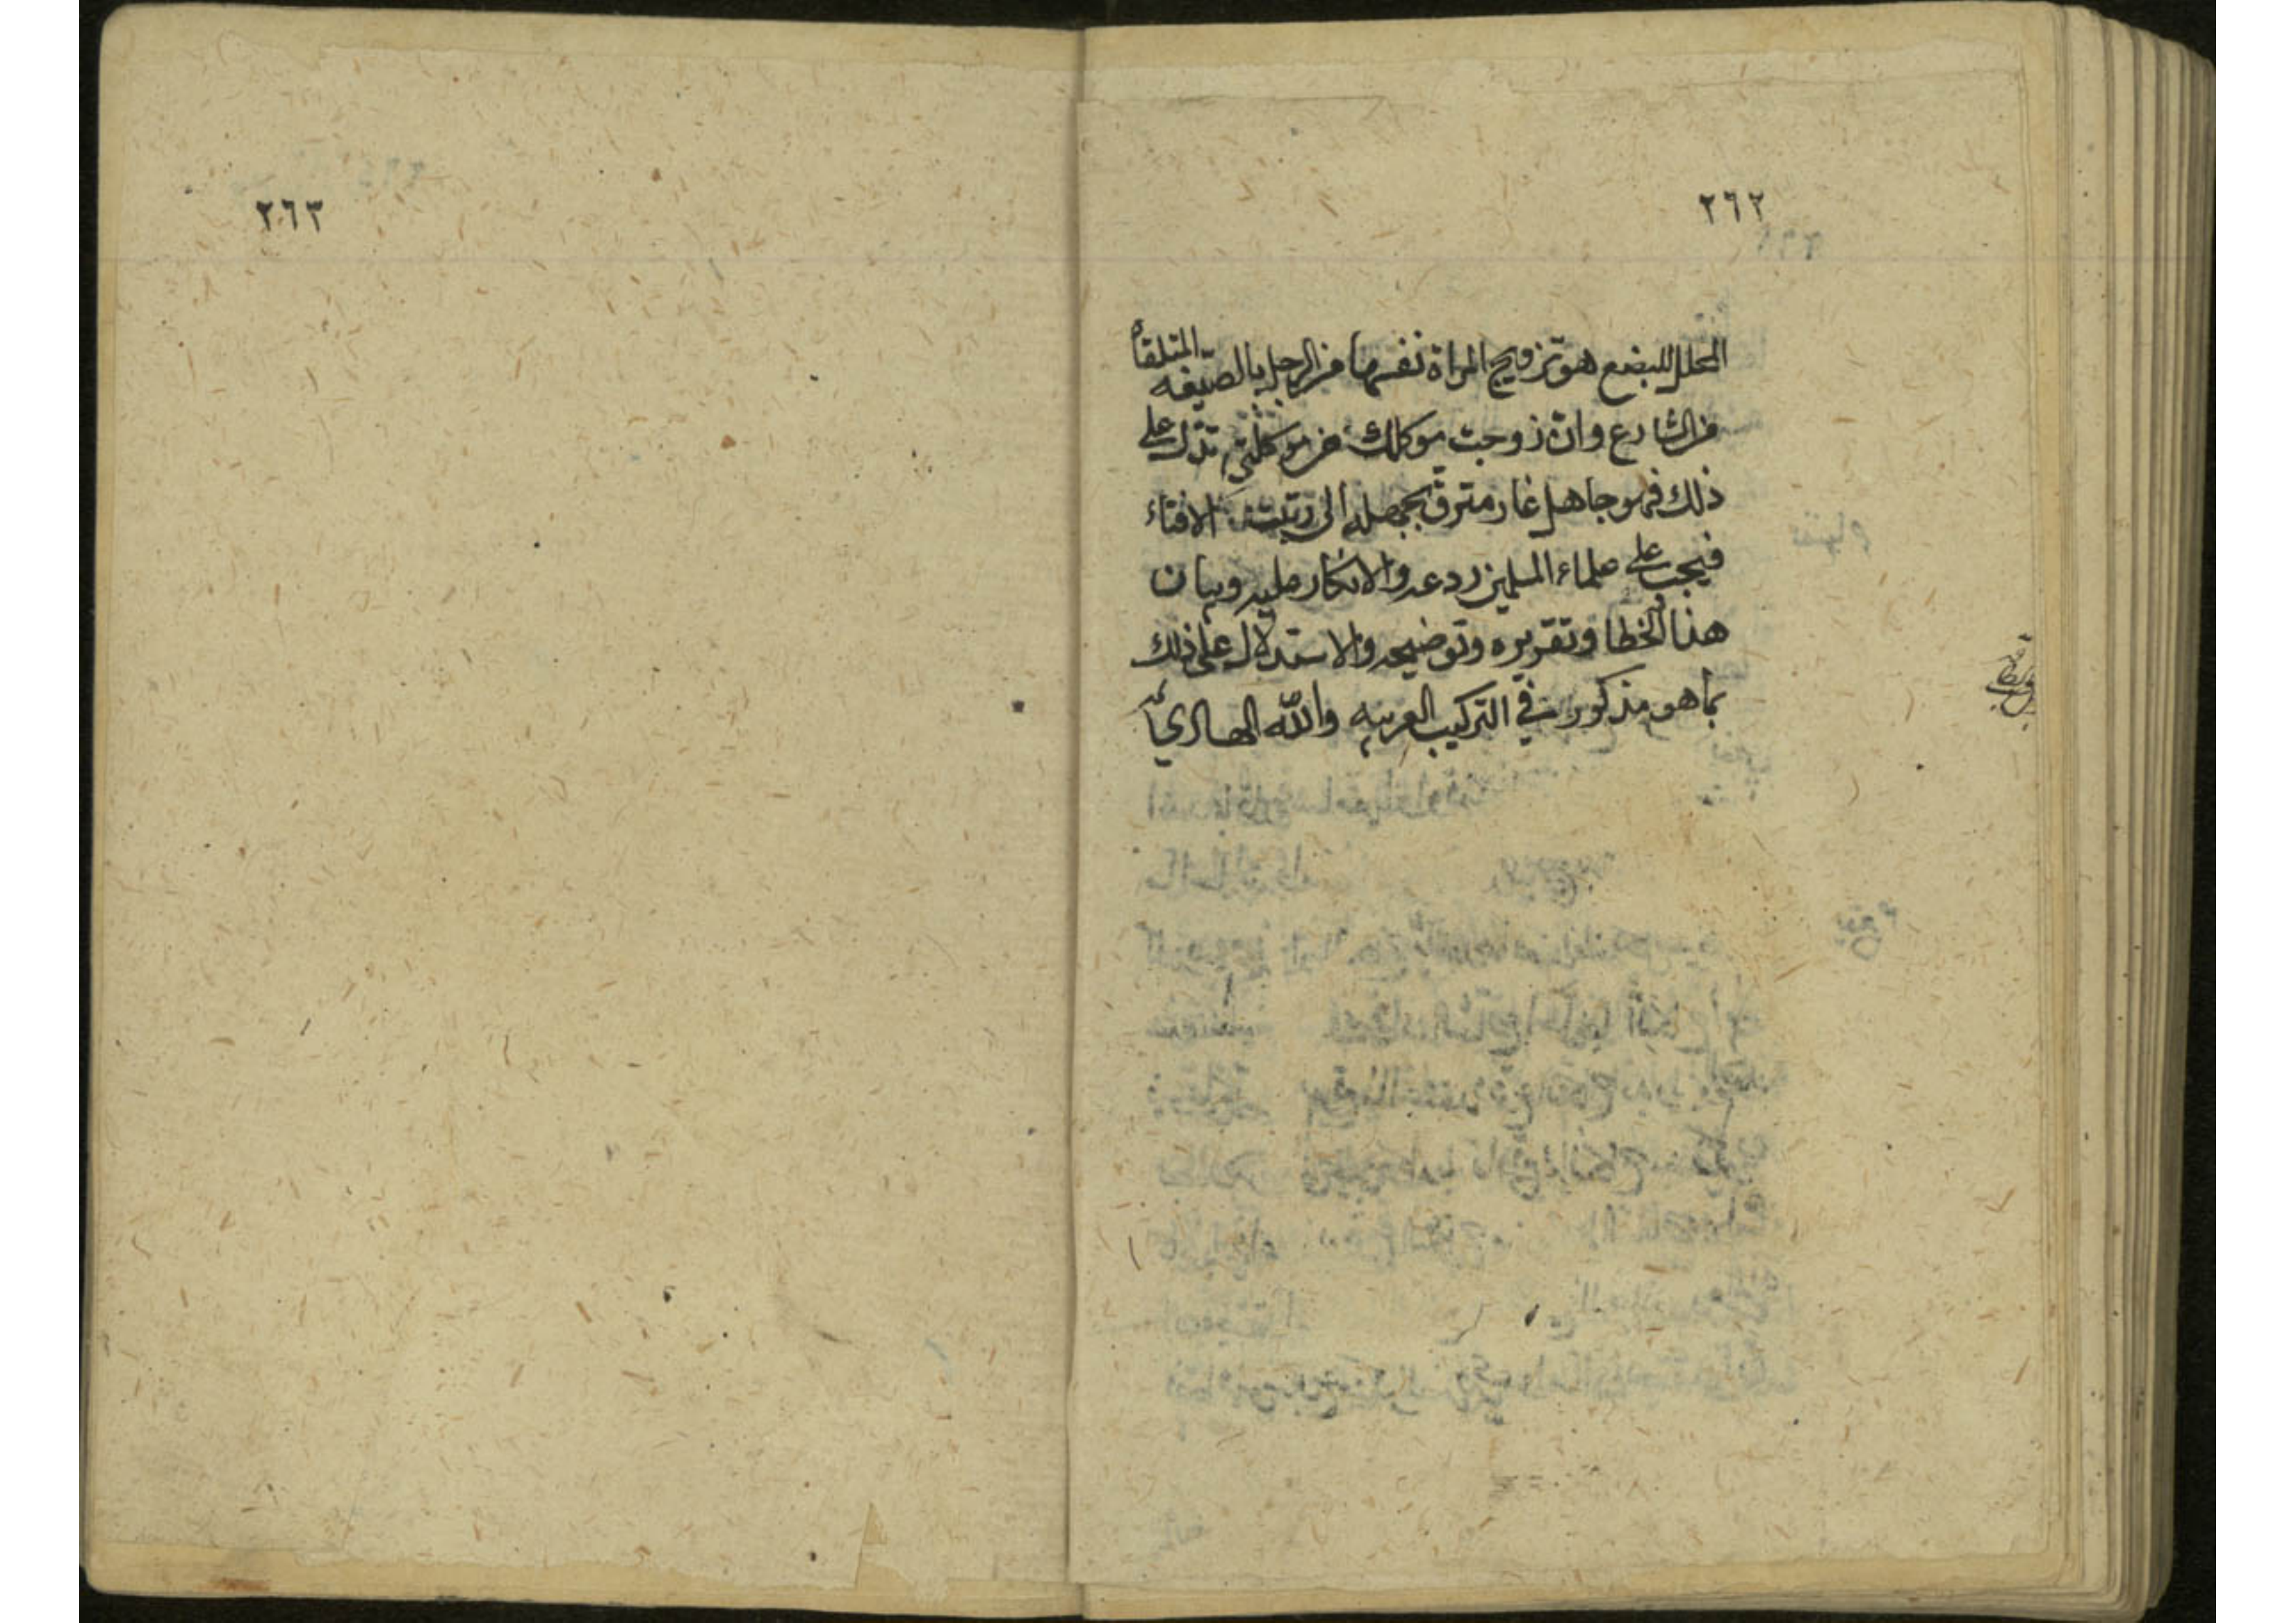 ٢٦٢
المحلل للبضع هو تزويج المراة نفسها من الرجل بالصيغه المتلقاه
من الشارع وان زوجت موكلك من موكلتي تدل على
ذلك فهو جاهل عار مترق بجهله الى رتبت الافتاء
فيجب على علماء المسلمين ردعه والانكار عليه وبيان
هذا الخطا وتقريره وتوضيحه والاستدلال على ذلك
بما هو مذكور في التركيب العربيه والله الهادي
٢٦٣